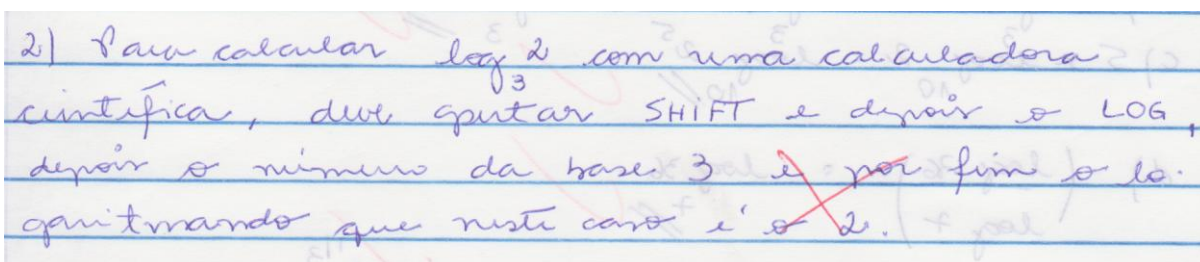 2) Para calcular log₃ 2 com uma calculadora
científica, deve apertar SHIFT e depois o LOG,
depois o número da base 3 e por fim o lo-
garitmando que neste caso é o 2.